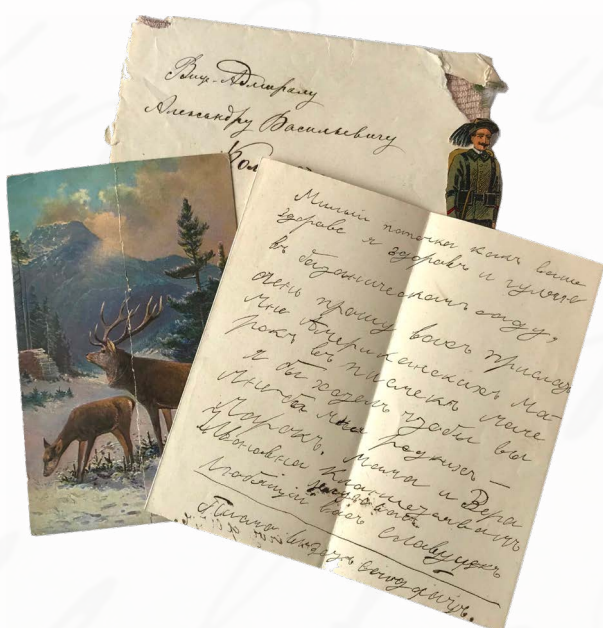 Вице-Адмиралу
Александру Васильевичу
Кол
Милый папочка какъ ваше
здорове я здоровъ и гуляю
въ ботаническомъ саду,
очень прошу васъ прислать
мне Американскихъ ма
рокъ въ письмахъ
я бы хотелъ чтобы вы
мне
Марокъ. Мама и Вера
Ивановна кланяется вамъ
Любящий васъ Славушка
Писалъ